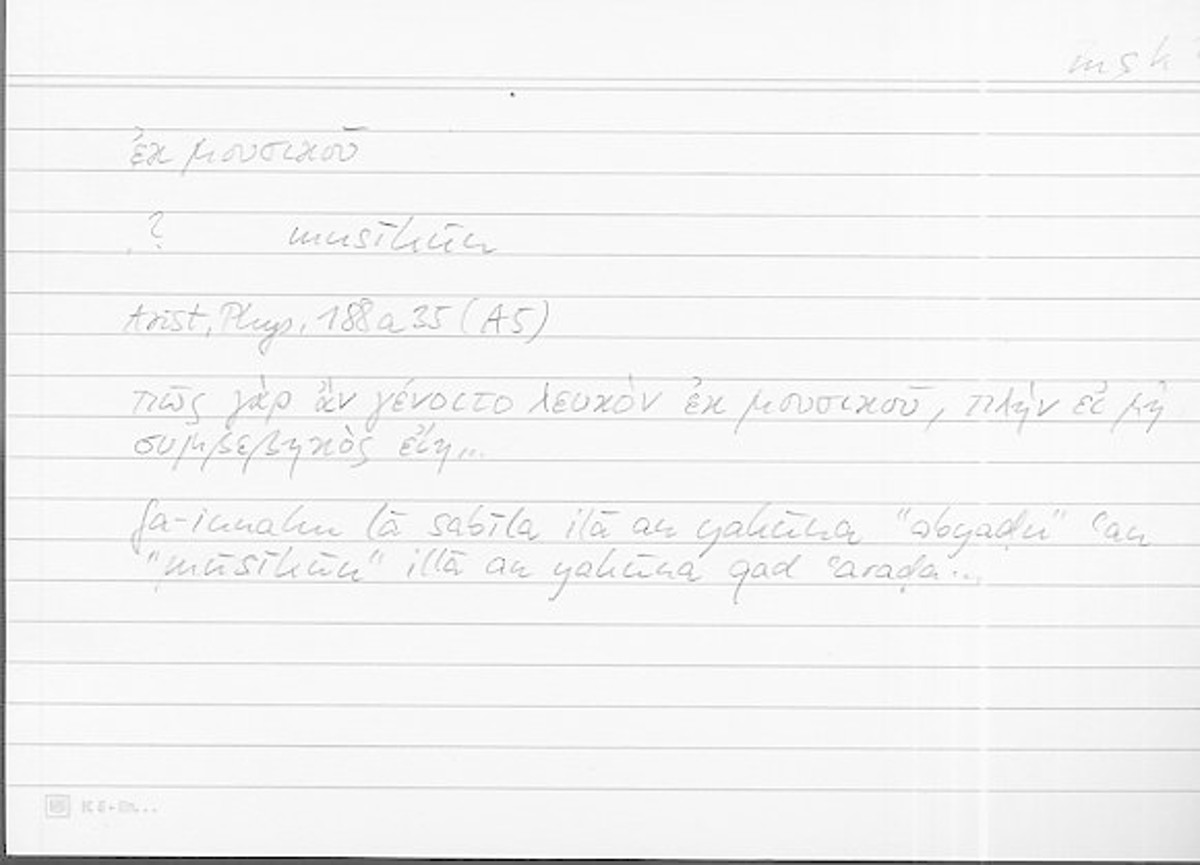 msk
ἐκ μουσικοῦ
? musīkūn
Arist. Phys. 188a35 (A5)
πῶς γὰρ ἂν γένοιτο λευκὸν ἐκ μουσικοῦ, πλὴν εἰ μὴ
συμβεβηκὸς εἴη...
fa-innahu lā sabīla ilā an yakūna "abyaḍu" ʿan
"mūsīkūn" illā an yakūna qad ʿaraḍa...